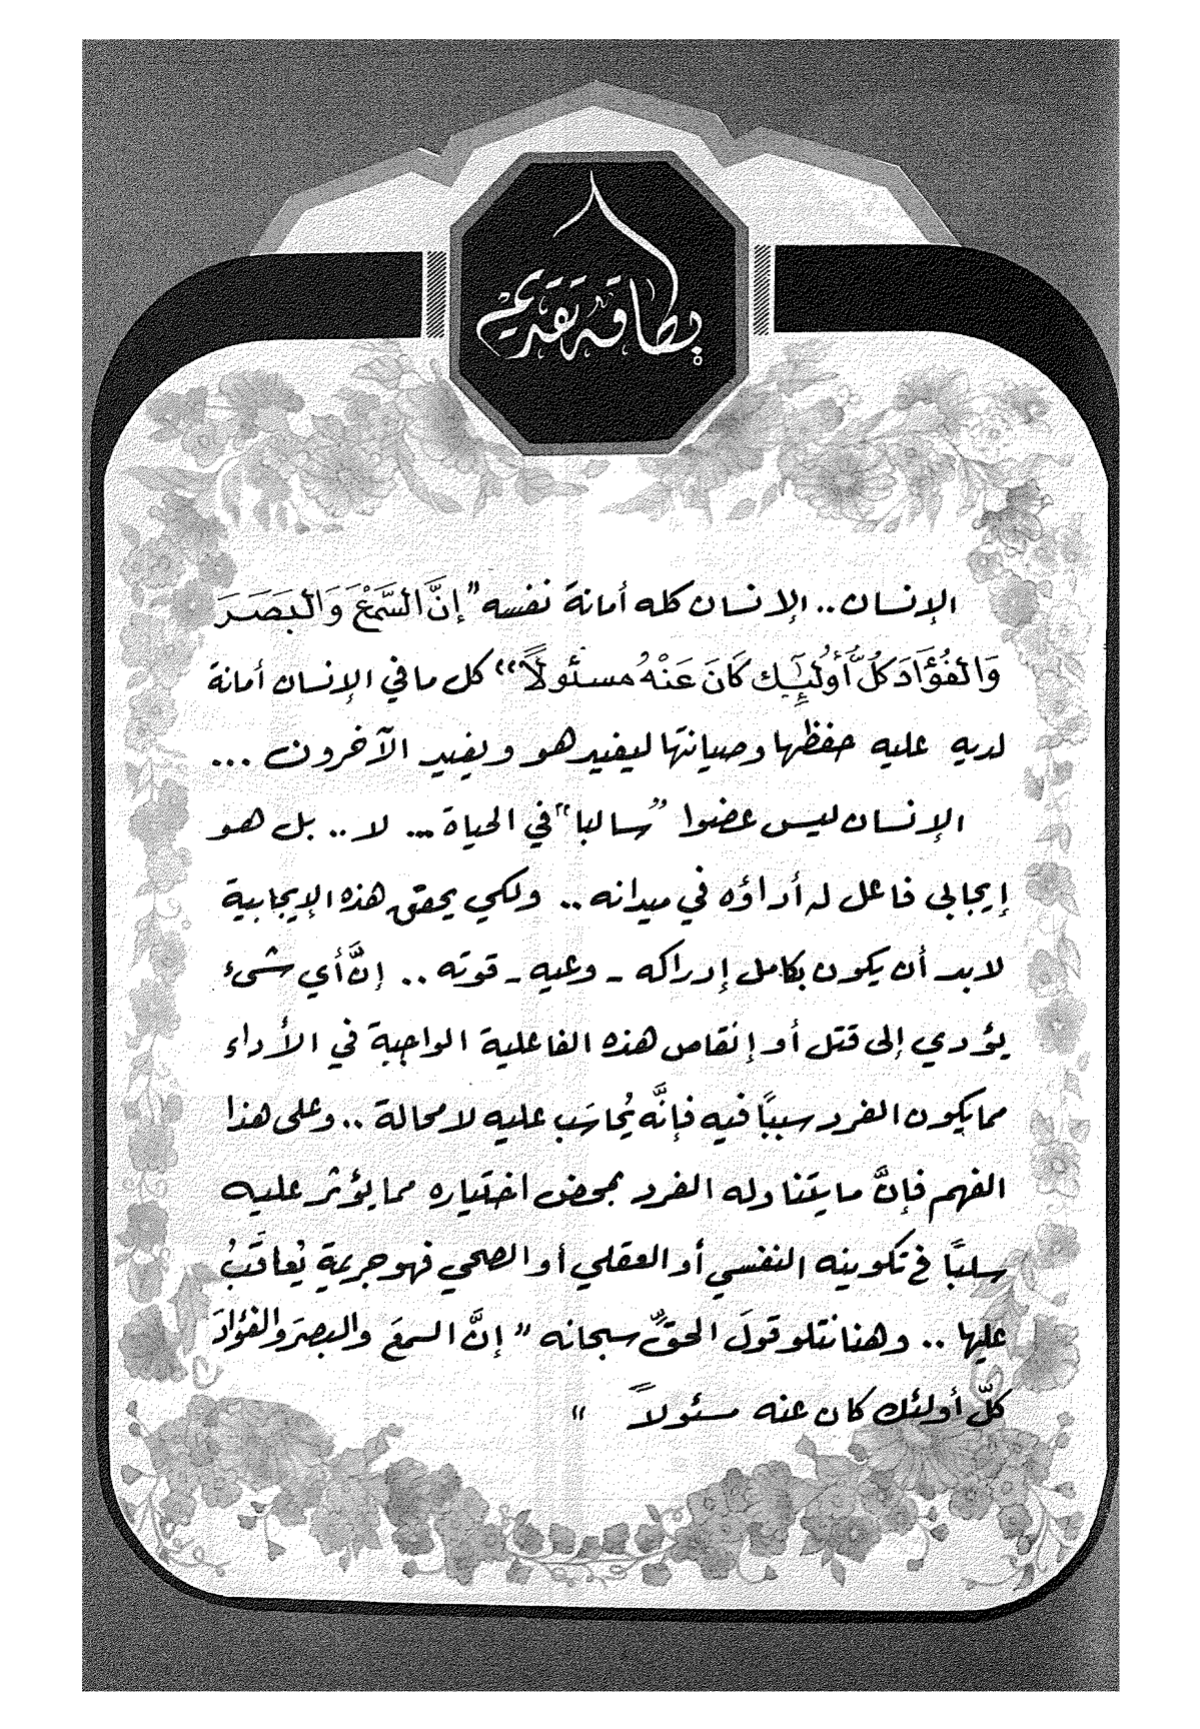 بطاقة تقديم
الإنسان.. الإنسان كله أمانة نفسه "إنَّ السَّمْعَ وَالبَصَرَ
وَالفُؤَادَ كُلُّ أُولَٰئِكَ كَانَ عَنْهُ مسئُولاً" كل ما في الإنسان أمانة
لديه عليه حفظها وصيانتها ليفيد هو ويفيد الآخرون ...
الإنسان ليس عضوا "سالبا" في الحياة ... لا .. بل هو
إيجابي فاعل له أداؤه في ميدانه .. ولكي يحقق هذه الإيجابية
لابد أن يكون بكامل إدراكه - وعيه - قوته .. إنَّ أي شىء
يؤدي إلى قتل أو إنقاص هذه الفاعلية الواجبة في الأداء
مما يكون الفرد سببًا فيه فإنَّه يُحاسَب عليه لا محالة .. وعلى هذا
الفهم فإنَّ ما يتناوله الفرد بمحض اختياره مما يؤثر عليه
سلبًا في تكوينه النفسي أو العقلي أو الصحي فهو جريمة يُعاقَبُ
عليها .. وهنا نتلو قولَ الحقِّ سبحانه " إنَّ السمعَ والبصرَ والفؤادَ
كلّ أولئك كان عنه مسئولاً "